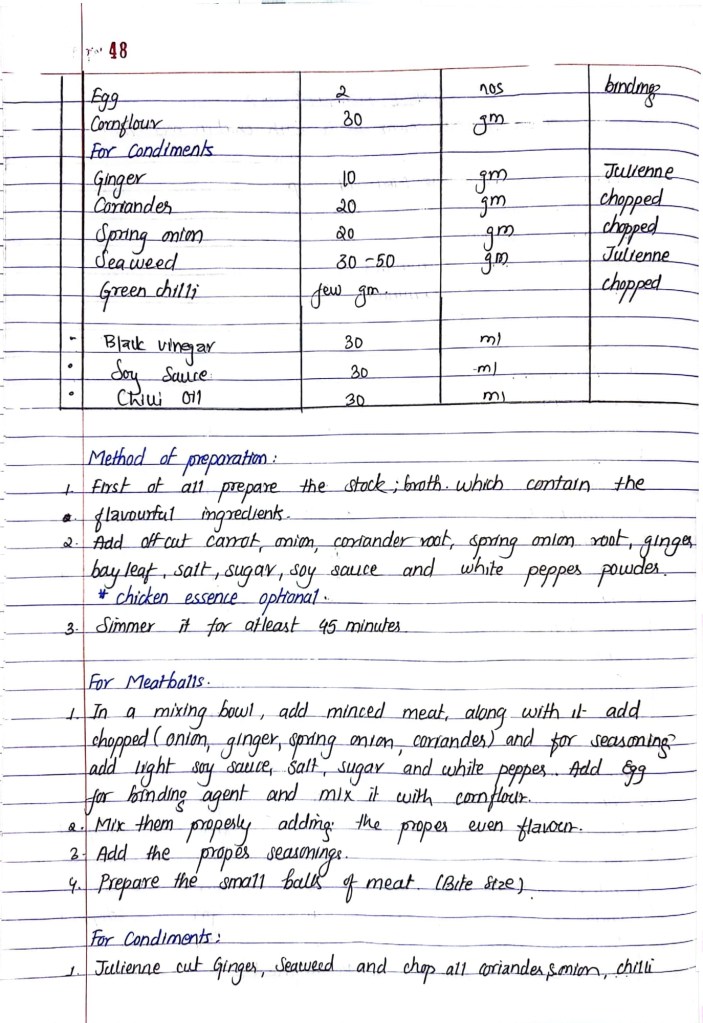 48
Egg 2 nos binding
Cornflour 30 gm
For Condiments
Ginger 10 gm Julienne
Coriander 20 gm chopped
Spring onion 20 gm chopped
Sea weed 30-50 gm Julienne
Green chilli few gm. chopped
- Black vinegar 30 ml
• Soy Sauce 30 ml
• Chilli oil 30 ml
Method of preparation:
1. First of all prepare the stock; broth. which contain the
flavourful ingredients.
2. Add off cut carrot, onion, coriander root, spring onion root, ginger,
bay leaf, salt, sugar, soy sauce and white pepper powder.
* chicken essence optional.
3. Simmer it for atleast 45 minutes.
For Meatballs.
1. In a mixing bowl, add minced meat, along with it add
chopped (onion, ginger, spring onion, coriander) and for seasoning
add light soy sauce, salt, sugar and white pepper. Add Egg
for binding agent and mix it with cornflour.
2. Mix them properly adding the proper even flavour.
3. Add the proper seasonings.
4. Prepare the small balls of meat. (Bite Size)
For Condiments:
1. Julienne cut Ginger, Seaweed and chop all coriander, s.onion, chilli